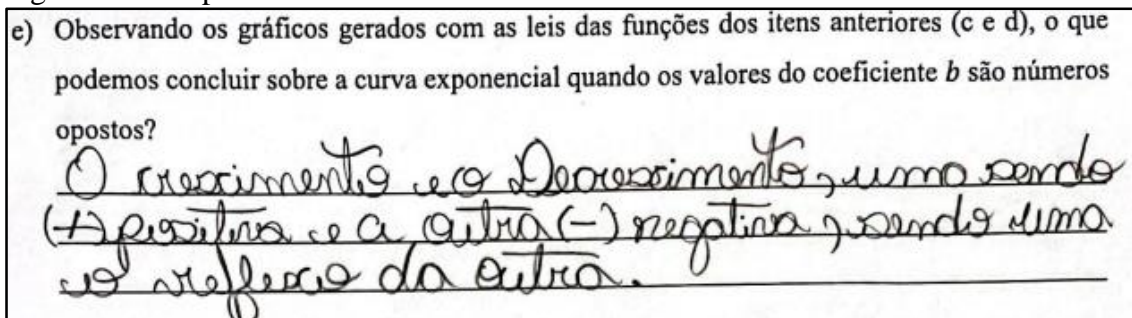 e) Observando os gráficos gerados com as leis das funções dos itens anteriores (c e d), o que
podemos concluir sobre a curva exponencial quando os valores do coeficiente b são números
opostos?
O crescimento e o Decrescimento, uma sendo
(+) positiva e a outra (-) negativa, sendo uma
o reflexo da outra.